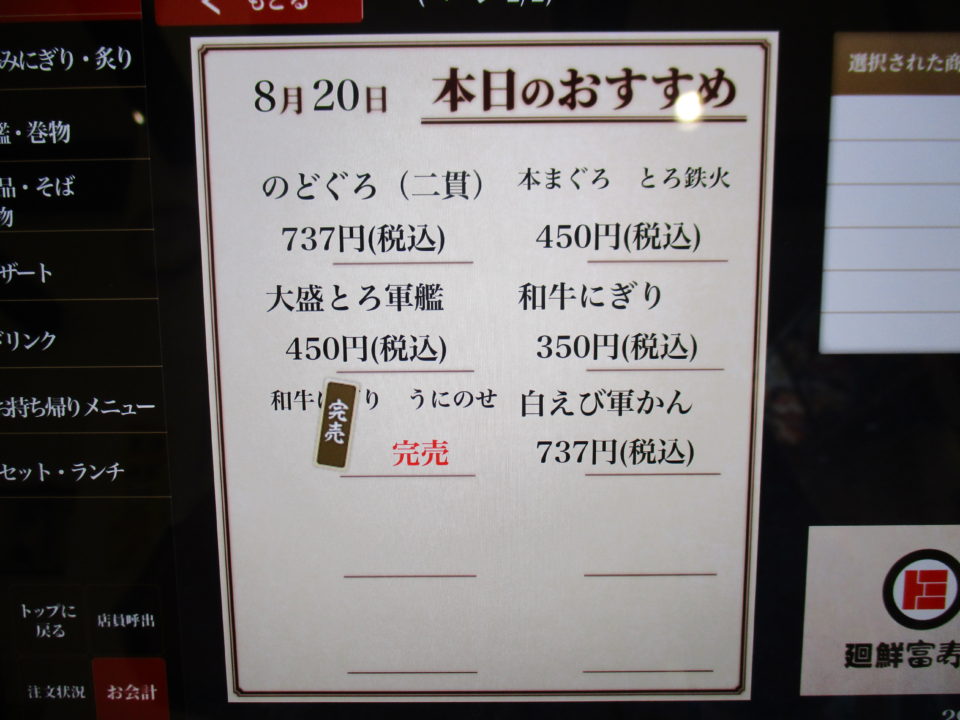 もどる
みにぎり・炙り
艦・巻物
品・そば
物
ザート
リンク
お持ち帰りメニュー
セット・ランチ
トップに
戻る
店員呼出
注文状況
お会計
8月20日
本日のおすすめ
のどぐろ（二貫）
737円(税込)
本まぐろ　とろ鉄火
450円(税込)
大盛とろ軍艦
450円(税込)
和牛にぎり
350円(税込)
和牛にぎり　うにのせ
完売
完売
白えび軍かん
737円(税込)
選択された商
廻鮮富寿